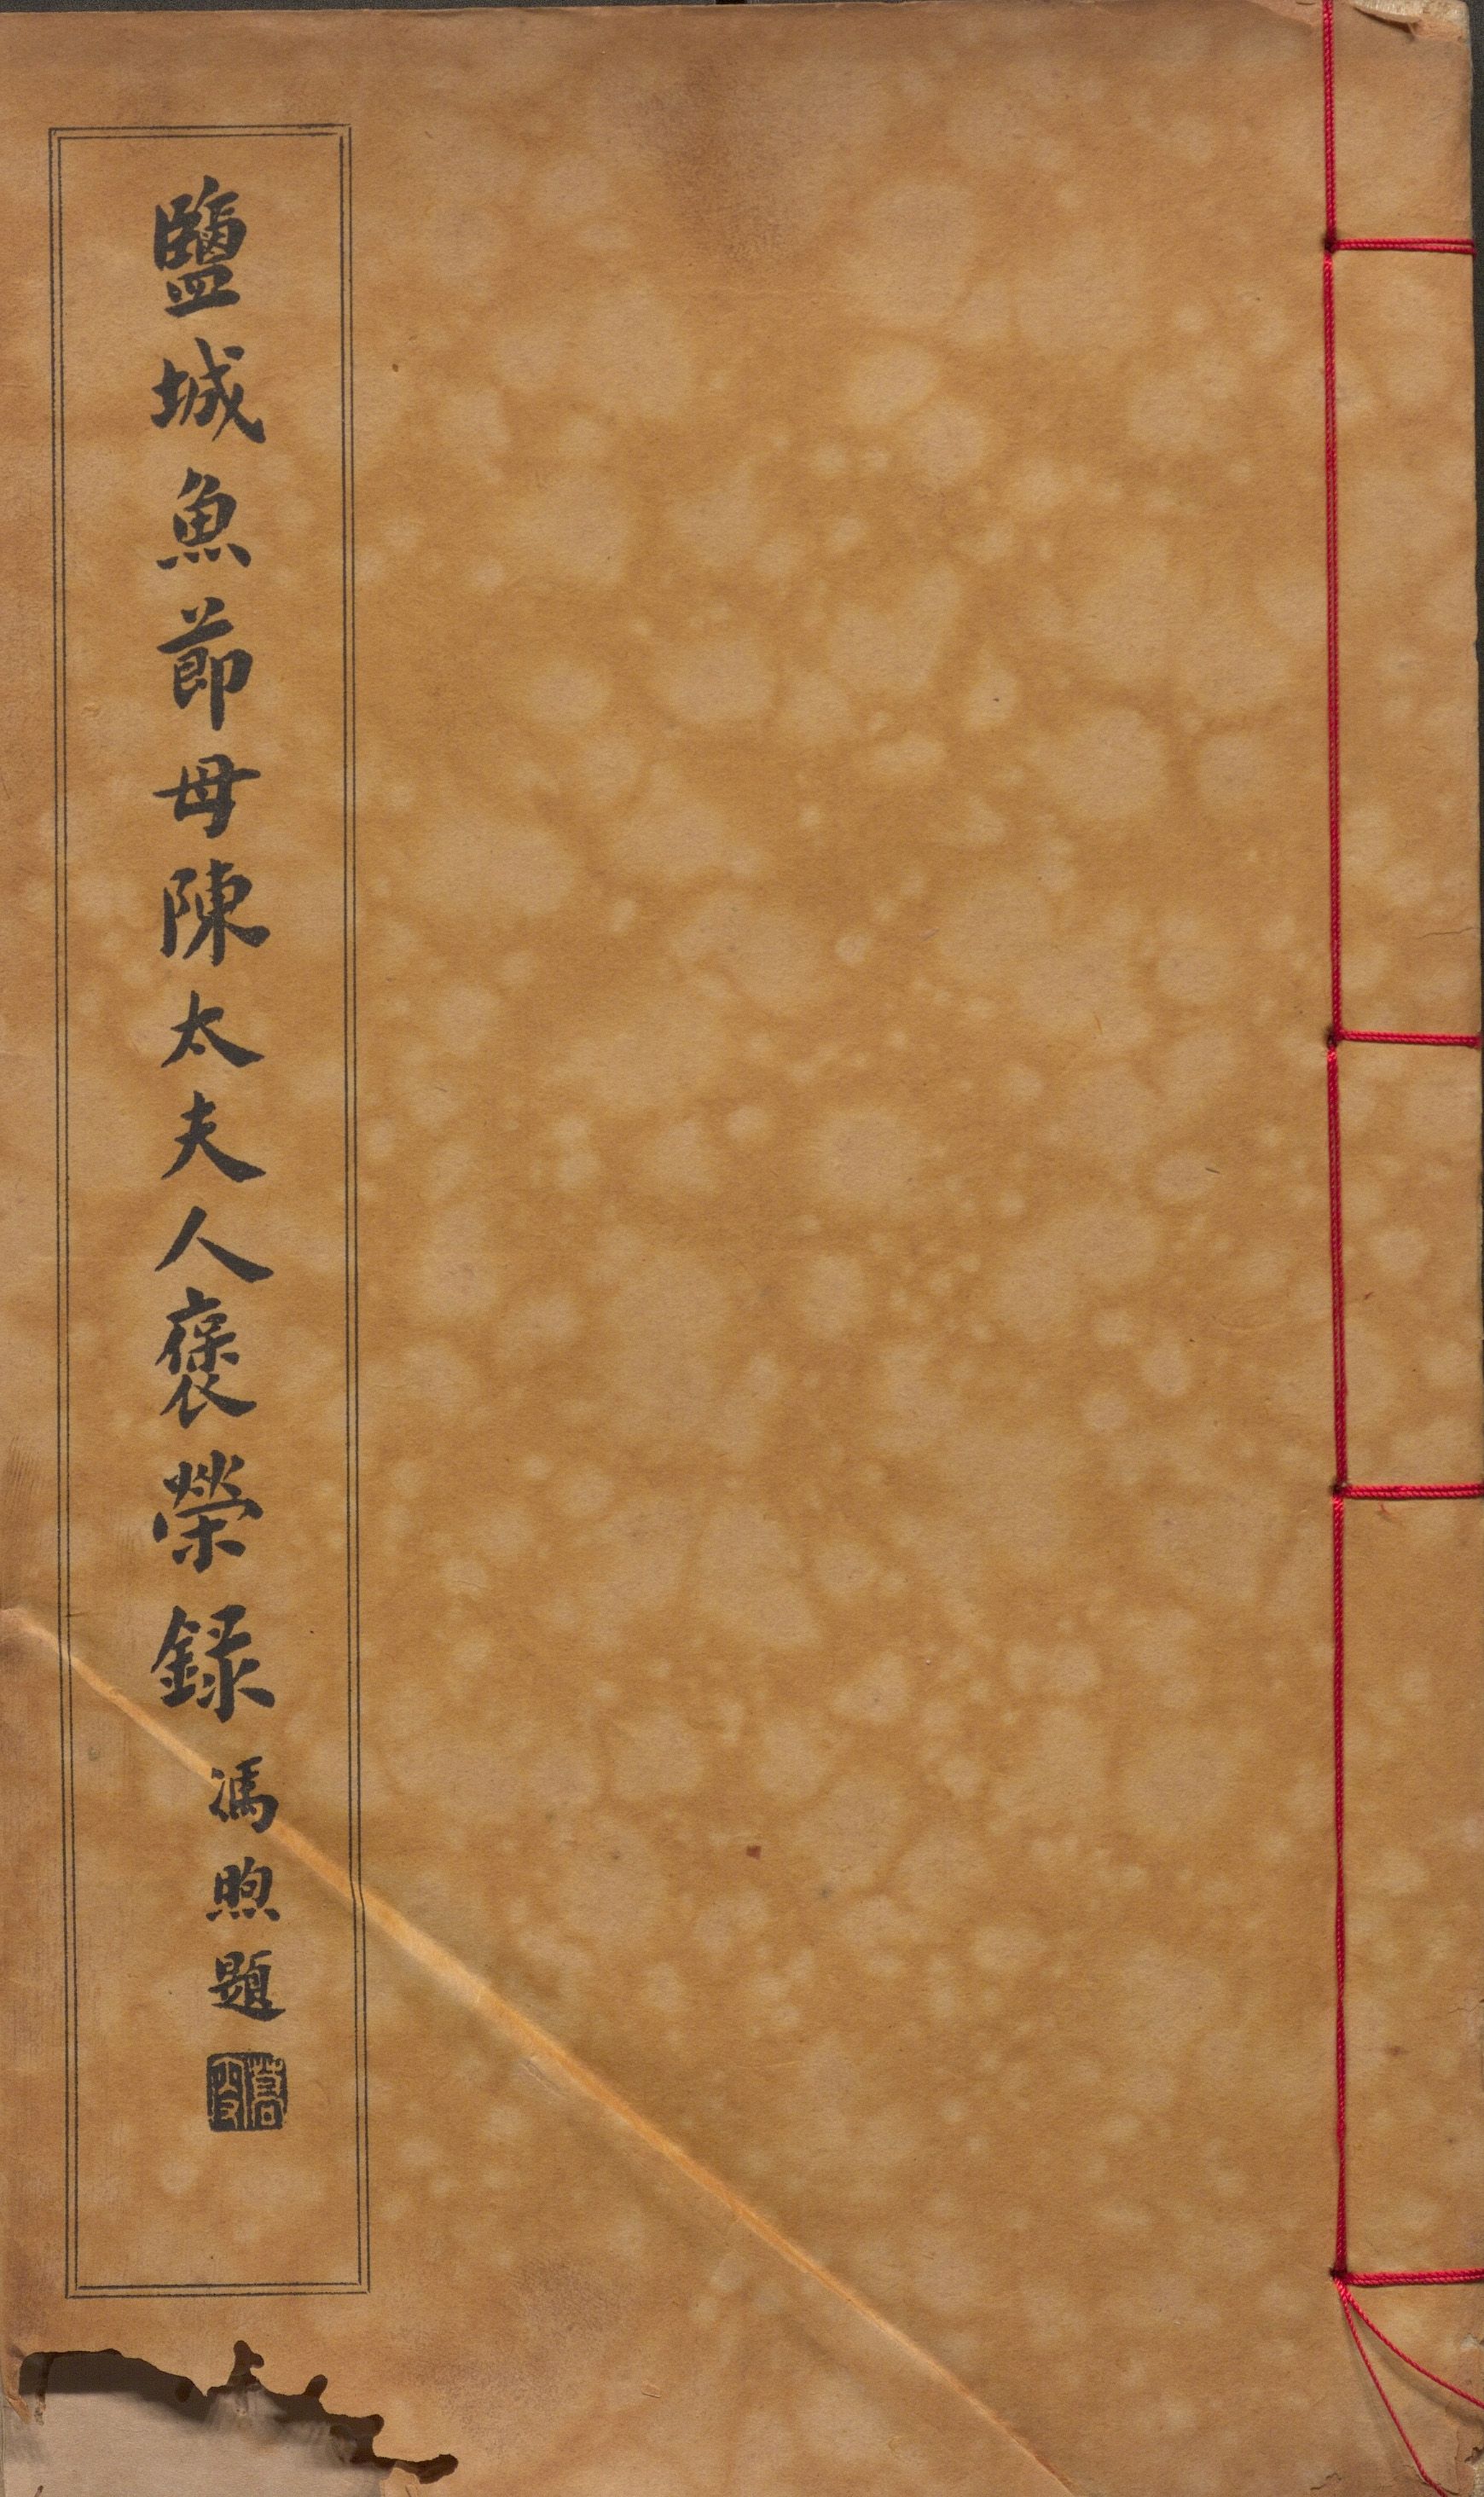 鹽城魚節母陳太夫人褒榮錄
馮煦題
蒿叟